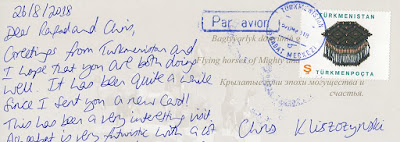 26/8/2018
Dear Rafael and Chris,
Greetings from Turkmenistan and
I hope that you are both doing
well. It has been quite a while
since I sent you a new card!
This has been a very interesting visit.
is very futuristic with a lot
Par avion
TÜRKMENISTAN
TÜRKMENPOÇTA
Flying horses of Mighty and
Крылатые кони эпохи могущества и
счастья.
Chris Kliszczynski